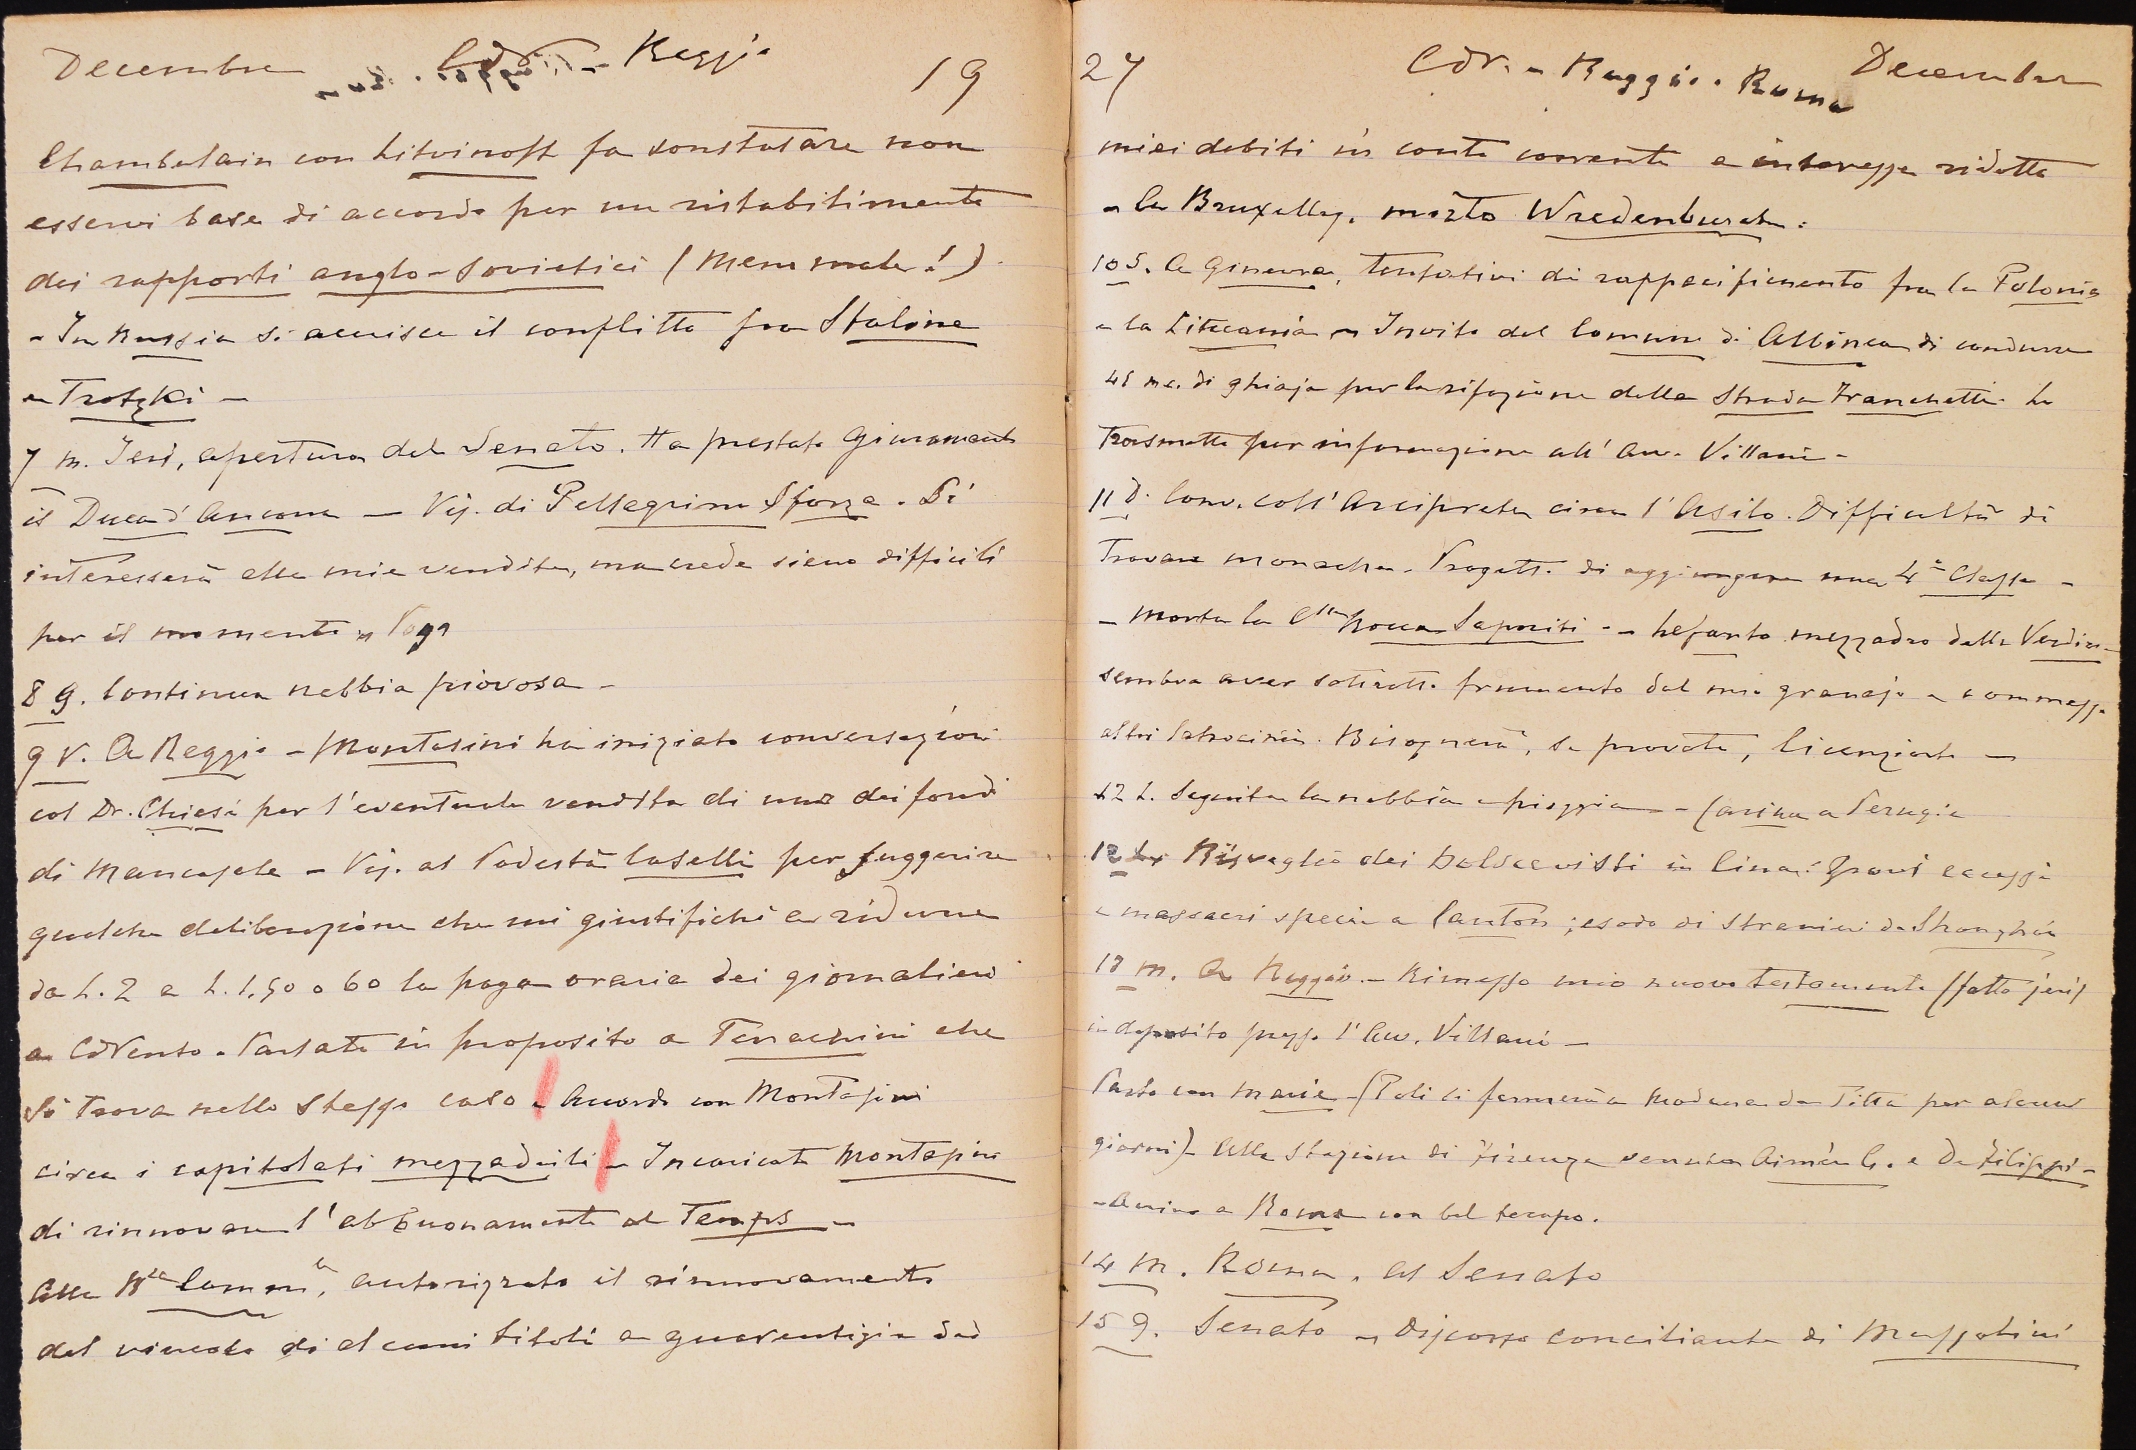 Decembre CdV. - Reggio 19
Chamberlain con Litvinoff fa constatare non
esservi base di accordo per un ristabilimento
dei rapporti anglo-sovietici (meno male!).
- In Russia si acuisce il conflitto fra Staline
e Trotzki -
7 m. Ieri, apertura del Senato. Ha prestato giuramento
il Duca d'Ancona - Vis. di Pellegrino Sforza. Si
interesserà alle mie vendite, ma crede sieno difficili
per il momento
8 g. Continua nebbia piovosa -
9 V. A Reggio - Montasini ha iniziato conversazioni
col Dr. Chiesi per l'eventuale vendita di uno dei fondi
di Mancasale - Vis. al Podestà Caselli per suggerire
qualche deliberazione che mi giustifichi a ridurre
da L. 2 a L. 1,50 o 60 la paga oraria dei giornalieri
a CdVento. Parlato in proposito a Terrachini che
si trova nello stesso caso - Accordo con Montasini
circa i capitolati mezzadrili - Incaricato Montasini
di rinnovare l'abbuonamento al Temps -
Alla Bca Commle, autorizzato il rinnovamento
del vincolo di alcuni titoli a guarentigia dei
27 CdV. - Reggio. Roma Decembre
miei debiti in conto corrente a interesse ridotto
- A Bruxelles, morto Wredenburch.
10 S. A Ginevra, tentativi di rappacificamento fra la Polonia
e la Lituania - Invito del Comune di Albinea di condurre
45 mc. di ghiaja per la rifazione della Strada Franchetti. Lo
trasmetto per informazione all'Avv. Villani -
11 D. Conv. coll'Arciprete circa l'Asilo. Difficoltà di
trovare monache. Progetto di aggiungere una 4a Classe -
- Morta la Ctssa Rocca Saporiti - Lefanto mezzadro della
sembra aver sottratto frumento dal mio granajo e commesso
altri latrocinii. Bisognerà, se provato, licenziarlo -
12 L. Seguita la nebbia e pioggia - Carina a Perugia
12 Risveglio dei bolscevisti in Cina: Gravi eccessi
e massacri specie a Canton; esodo di stranieri da Shanghai
13 m. A Reggio - Rimesso mio nuovo testamento (fatto jeri)
in deposito presso l'Avv. Villani -
Parto con Marie - (Poli si fermerà a Modena da Titta per alcuni
giorni) - Alla stazione di Firenze venuta Aimée G. e De Filippi -
- Arrivo a Roma con bel tempo.
14 M. Roma. Al Senato
15 g. Senato - Discorso conciliante di Mussolini